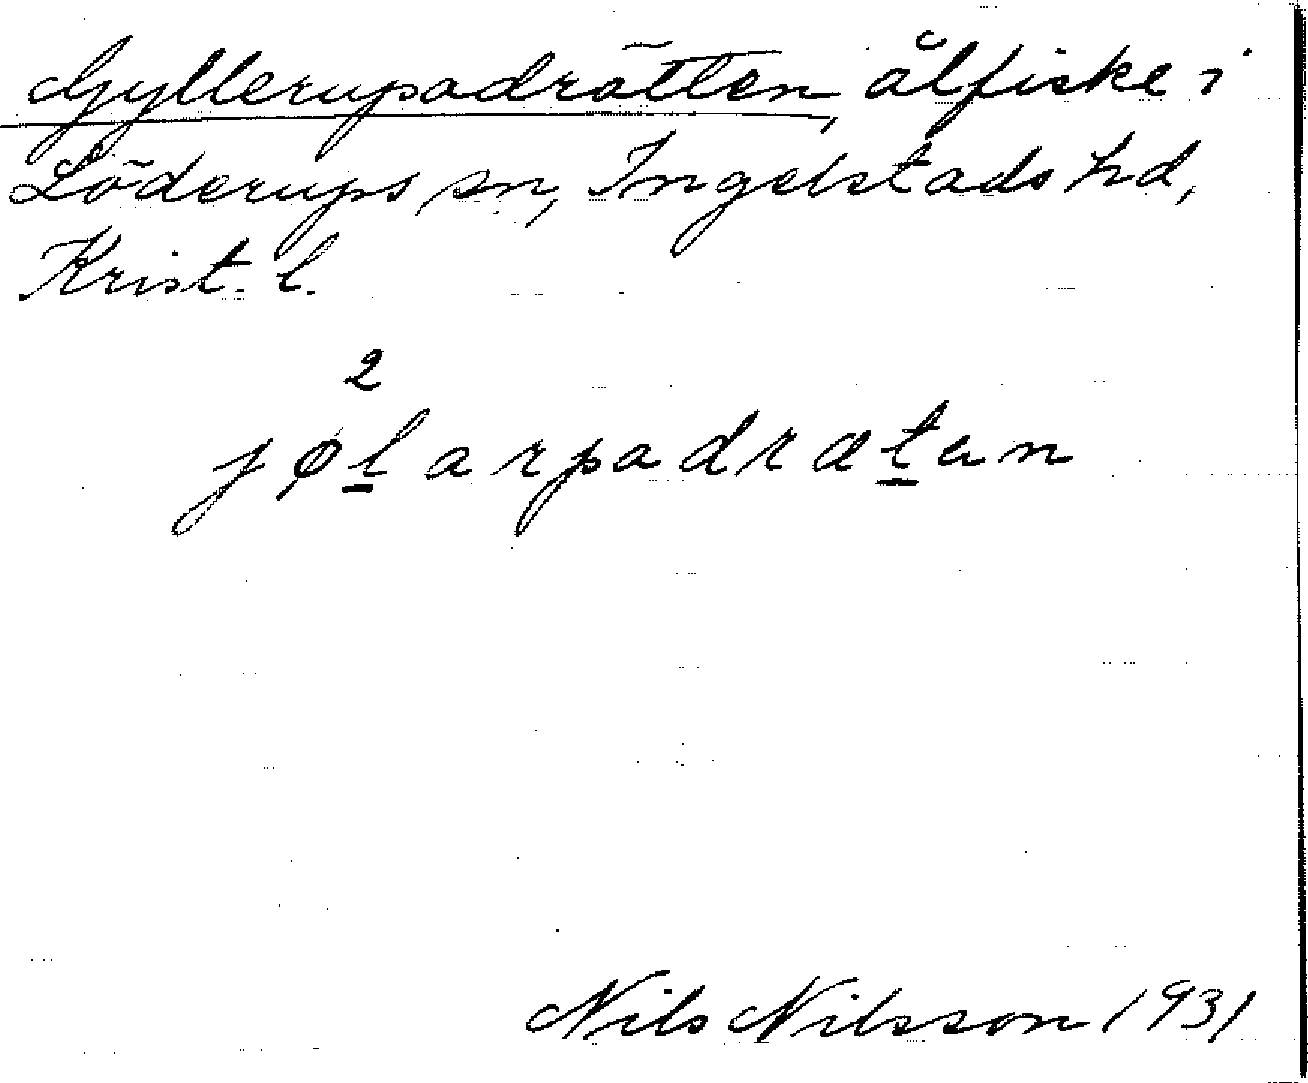 Gyllerupadrätten, ålfiske i
Löderups sn, Ingelstads hd,
Krist. l.
2
jølarpadrætan
Nils Nilsson 1931